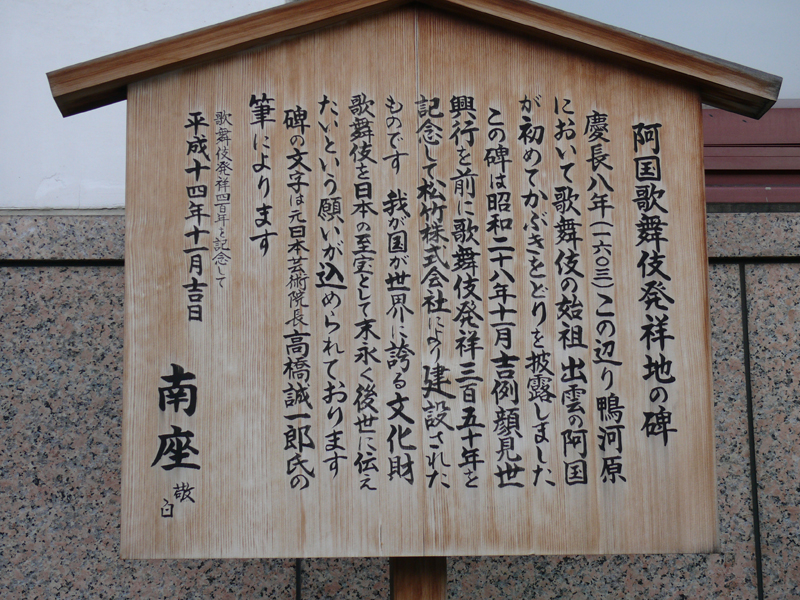 阿国歌舞伎発祥地の碑
慶長八年(一六〇三)この辺り鴨河原
において歌舞伎の始祖 出雲の阿国
が初めてかぶきをどりを披露しました
この碑は昭和二十八年十一月吉例顔見世
興行を前に歌舞伎発祥三百五十年を
記念して松竹株式会社により建設された
ものです 我が国が世界に誇る文化財
歌舞伎を日本の至宝として末永く後世に伝え
たいという願いが込められております
碑の文字は元日本芸術院長高橋誠一郎氏の
筆によります
歌舞伎発祥四百年を記念して
平成十四年十一月吉日
南座 敬白